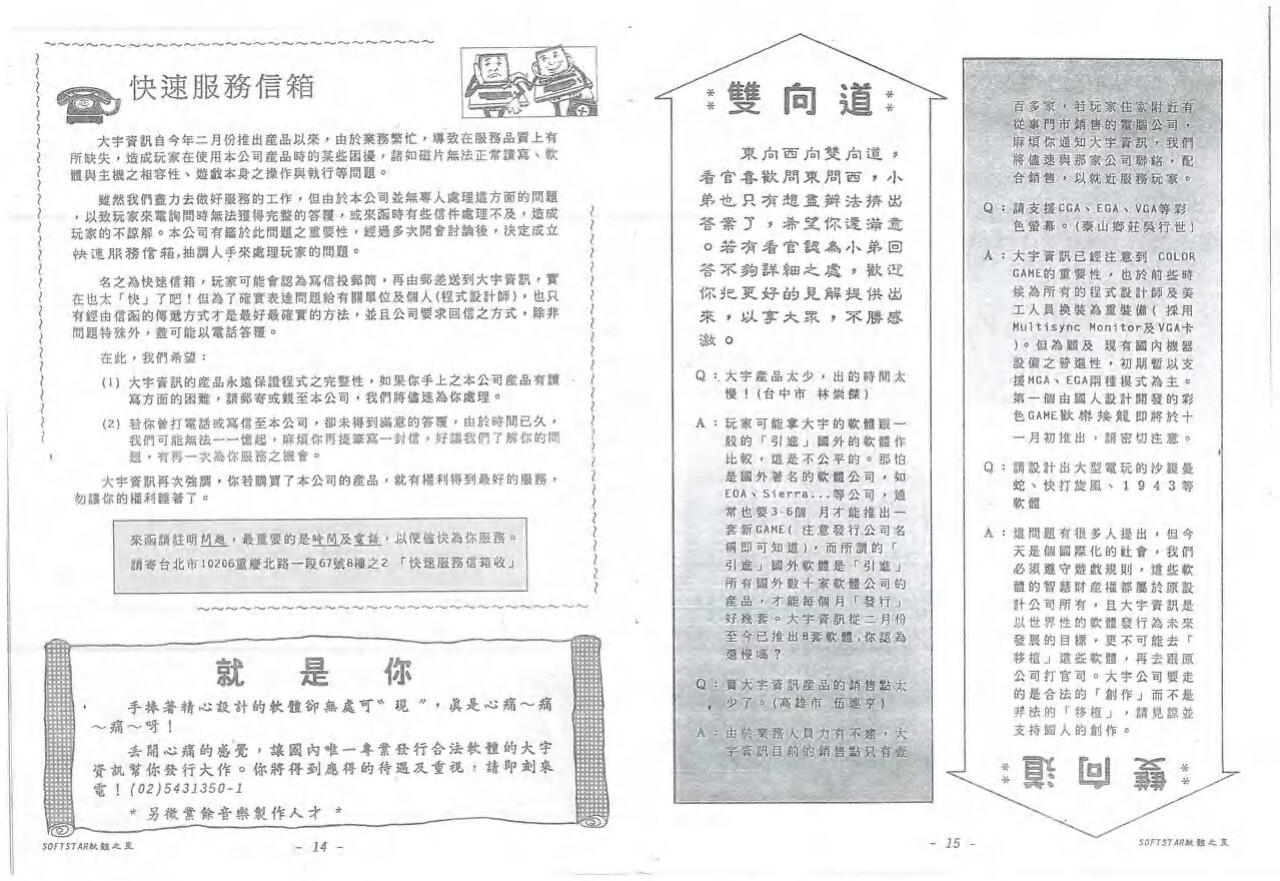 快速服務信箱
大宇資訊自今年二月份推出產品以來，由於業務繁忙，導致在服務品質上有
所缺失，造成玩家在使用本公司產品時的某些困擾，諸如磁片無法正常讀寫、軟
體與主機之相容性、遊戲本身之操作與執行等問題。
雖然我們盡力去做好服務的工作，但由於本公司並無專人處理這方面的問題
，以致玩家來電詢問時無法獲得完整的答覆，或來函時有些信件處理不及，造成
玩家的不諒解。本公司有鑑於此問題之重要性，經過多次開會討論後，決定成立
快速服務信箱,抽調人手來處理玩家的問題。
名之為快速信箱，玩家可能會認為寫信投郵筒，再由郵差送到大宇資訊，實
在也太「快」了吧！但為了確實表達問題給有關單位及個人(程式設計師)，也只
有經由信函的傳遞方式才是最好最確實的方法，並且公司要求回信之方式，除非
問題特殊外，盡可能以電話答覆。
在此，我們希望：
(1) 大宇資訊的產品永遠保證程式之完整性，如果你手上之本公司產品有讀
寫方面的困難，請郵寄或親至本公司，我們將儘速為你處理。
(2) 若你曾打電話或寫信至本公司，卻未得到滿意的答覆，由於時間已久，
我們可能無法一一憶起，麻煩你再提筆寫一封信，好讓我們了解你的問
題，有再一次為你服務之機會。
大宇資訊再次強調，你若購買了本公司的產品，就有權利得到最好的服務，
勿讓你的權利睡著了。
來函請註明問題，最重要的是時間及電話，以便儘快為你服務。
請寄台北市10206重慶北路一段67號8樓之2「快速服務信箱收」
就是你
手捧著精心設計的軟體卻無處可〝現〞，真是心痛～痛
～痛～呀！
丟開心痛的感覺，讓國內唯一專業發行合法軟體的大宇
資訊幫你發行大作。你將得到應得的待遇及重視，請即刻來
電！(02)5431350-1
* 另徵業餘音樂製作人才 *
SOFTSTAR軟體之星
- 14 -
雙向道
東向西向雙向道，
看官喜歡問東問西，小
弟也只有想盡辦法擠出
答案了，希望你還滿意
。若有看官認為小弟回
答不夠詳細之處，歡迎
你把更好的見解提供出
來，以享大眾，不勝感
激。
Q：大宇產品太少，出的時間太
慢！(台中市 林崇傑)
A：玩家可能拿大宇的軟體跟一
般的「引進」國外的軟體作
比較，這是不公平的。那怕
是國外著名的軟體公司，如
EOA、Sierra...等公司，通
常也要3-6個 月才能推出一
套新GAME( 注意發行公司名
稱即可知道)，而所謂的「
引進」國外軟體是「引進」
所有國外數十家軟體公司的
產品，才能每個月「發行」
好幾套。大宇資訊從二月份
至今已推出8套軟體,你認為
還慢嗎？
Q：賣大宇資訊產品的銷售點太
少了。(高雄市 伍連亨)
A：由於業務人員力有不逮，大
宇資訊目前的銷售點只有壹
- 15 -
百多家，若玩家住家附近有
從事門市銷售的電腦公司，
麻煩你通知大宇資訊，我們
將儘速與那家公司聯絡，配
合銷售，以就近服務玩家。
Q：請支援CGA、EGA、VGA等彩
色螢幕。(泰山鄉莊吳行世)
A：大宇資訊已經注意到 COLOR
GAME的重要性，也於前些時
候為所有的程式設計師及美
工人員換裝為重裝備( 採用
Multisync Monitor及VGA卡
)。但為顧及 現有國內機器
設備之普遍性，初期暫以支
援MGA、EGA兩種模式為主。
第一個由國人設計開發的彩
色GAME歡樂接龍即將於十
一月初推出，請密切注意。
Q：請設計出大型電玩的沙羅曼
蛇、快打旋風、1943等
軟體
A：這問題有很多人提出，但今
天是個國際化的社會，我們
必須遵守遊戲規則，這些軟
體的智慧財產權都屬於原設
計公司所有，且大宇資訊是
以世界性的軟體發行為未來
發展的目標，更不可能去「
移植」這些軟體，再去跟原
公司打官司。大宇公司要走
的是合法的「創作」而不是
非法的「移植」，請見諒並
支持國人的創作。
雙向道
SOFTSTAR軟體之星